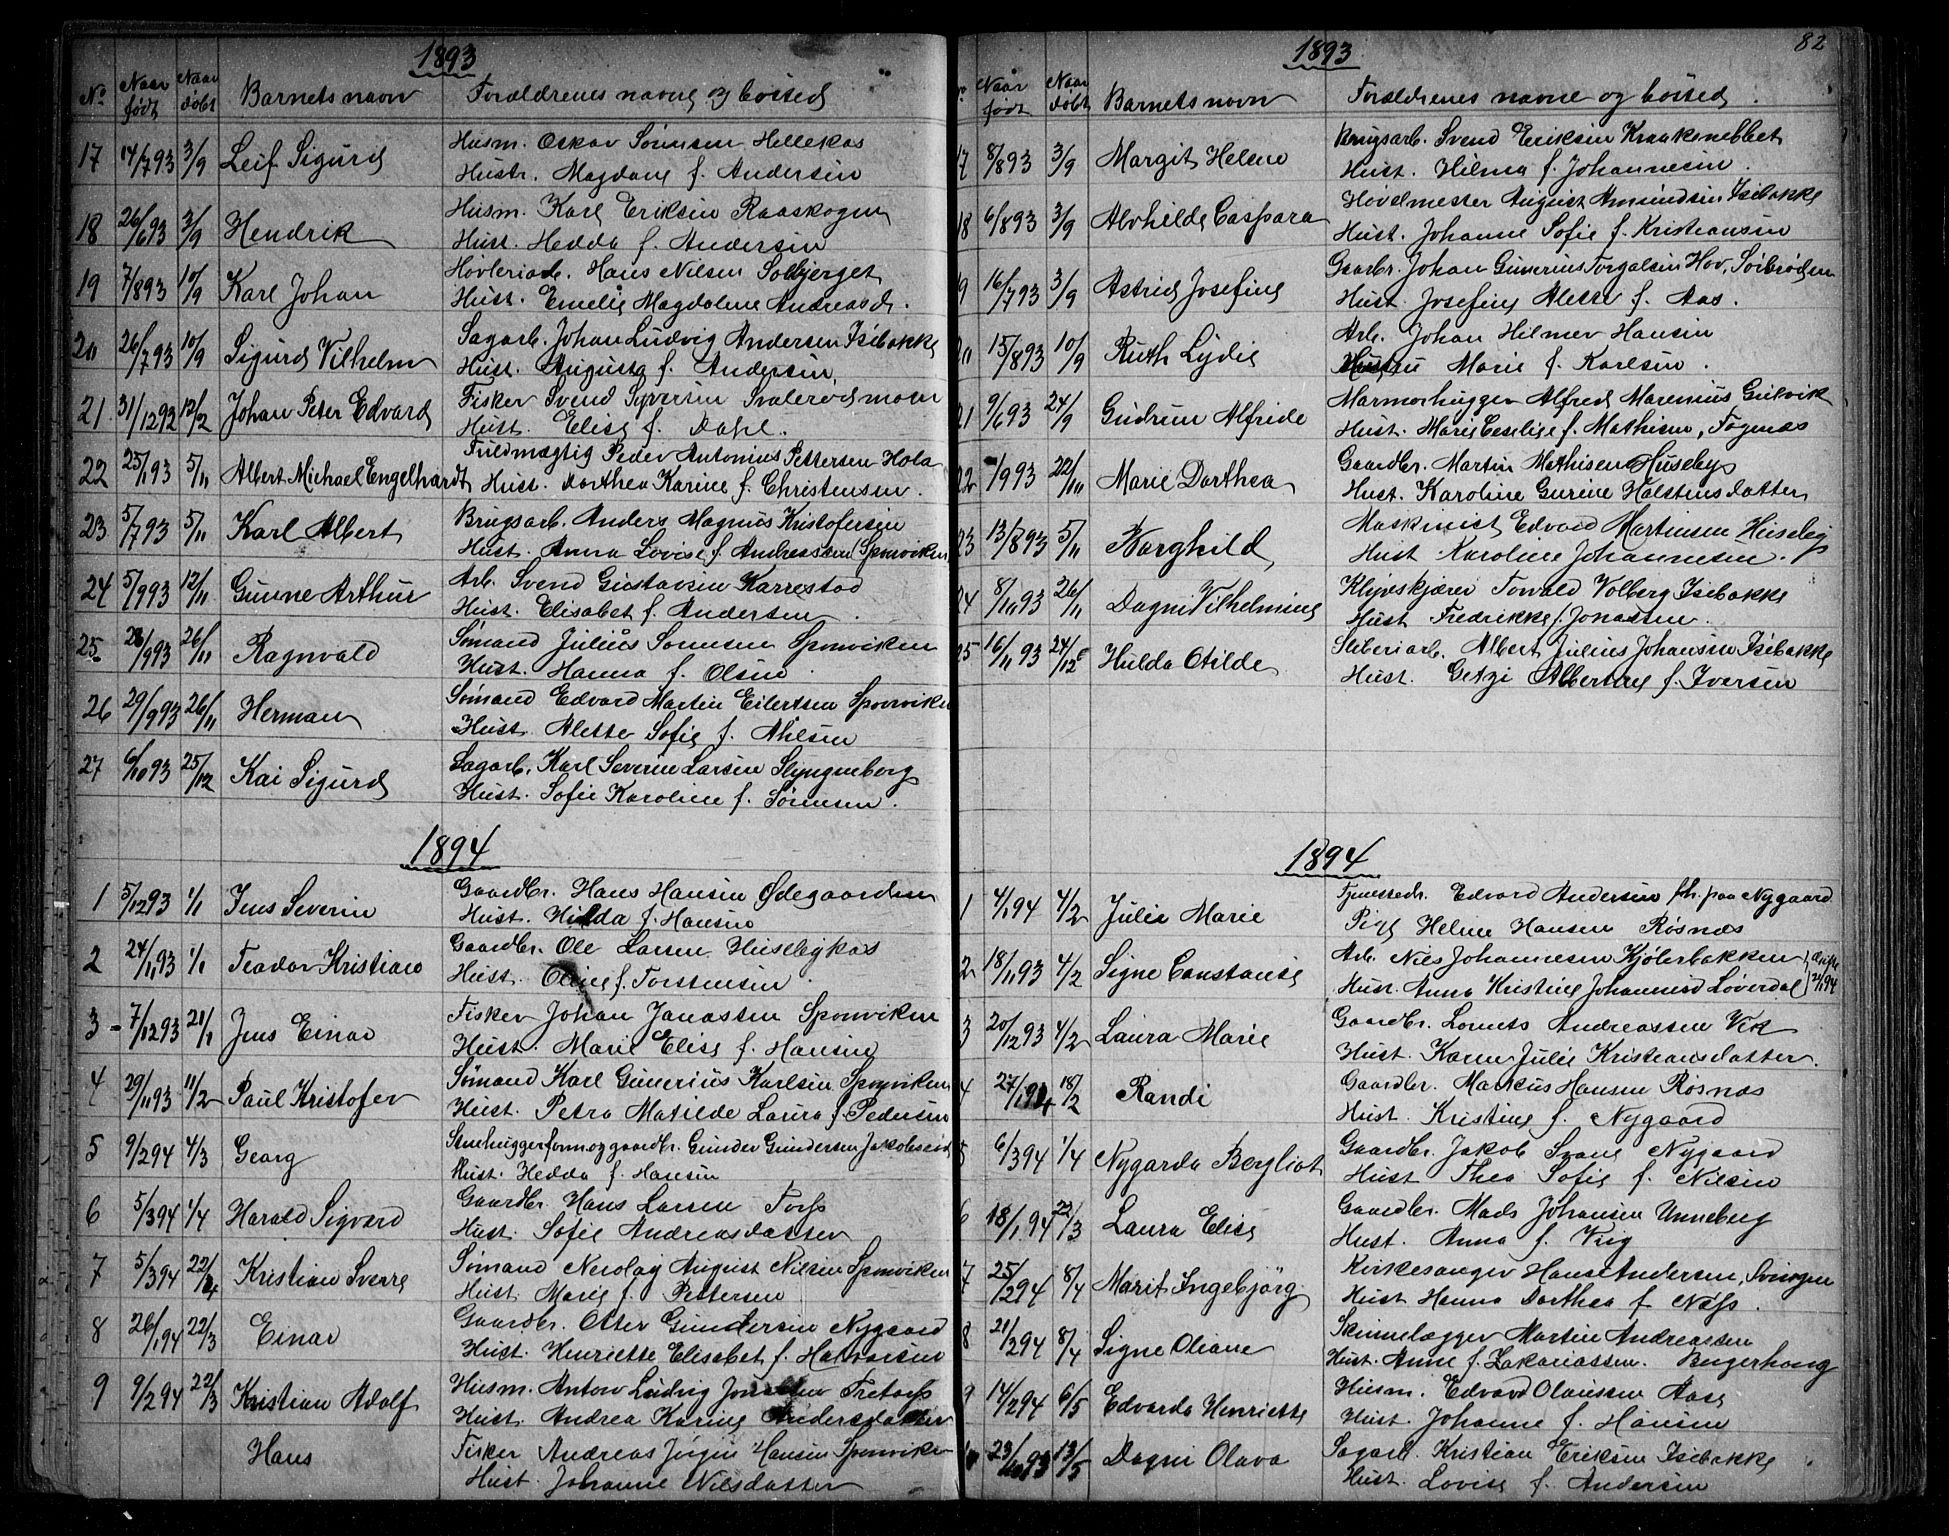 1893
No Naar født Naar døbt Barnets navn Forældrenes navne og bosted
17 14/7 93 3/9 Leif Sigurd Husm. Oskar Sørensen Hellekas
Hustr. Magdane f. Andersen
18 26/6 93 3/9 Hendrik Husm. Karl Eriksen Raaskogen
Hust. Hedda f. Andersen
19 7/8 93 10/9 Karl Johan Høvleriarb. Hans Nilsen Solbjerget
Hust. Emelie Magdalene Andreasd.
20 26/7 93 10/9 Sigurd Vilhelm Sagarb. Johan Ludvig Andersen Isebakke
Hust. Augusta f. Andersen
21 31/12 92 12/2 Johan Peter Edvard Fisker Svend Syversen Svalerødmoen
Hust. Elise f. Dahl.
22 25/1 93 5/11 Albert Michael Engelhardt Fuldmægtig Peder Antonius Pettersen Hola
Hust. Dorthea Karine f. Christensen.
23 5/7 93 5/11 Karl Albert Brugsarb. Anders Magnus Kristofersen
Hust. Anna Lovise f. Andreassen Sponviken
24 5/9 93 12/11 Gunne Arthur Arb. Svend Gustavsen Karrestad
Hust. Elisabet f. Andersen.
25 /9 93 26/11 Ragnvald Sømand Julius Sørensen Sponviken
Hust. Hanna f. Olsen
26 29/9 93 26/11 Herman Sømand Edvard Martin Eilertsen Sponviken
Hust. Alette Sofie f.
27 6/10 93 25/12 Kai Sigurd Sagarb. Karl Severin Larsen Slyngenborg
Hust. Sofie Karoline f. Sørensen.
1894
1 5/12 93 1/1 Jens Severin Gaardbr. Hans Hansen Ødegaarden
Hust. Hilda f. Hansen
2 24/11 93 1/1 Teodor Kristian Gaardbr. Ole Larsen Husebykas
Hust. Oline f. Torstensen
3 7/12 93 21/1 Jens Einar Fisker Johan Jonassen Sponviken
Hust. Marie Elise f. Hansen
4 29/11 93 11/2 Paul Kristofer Sømand Karl Gunerius Karlsen Sponviken
Hust. Petra Matilde Laura f. Pedersen
5 9/2 94 4/3 Georg Stenhuggerform. og gaardbr. Gunder Gundersen Jakobseid
Hust. Hedda f. Hansen
6 5/3 94 1/4 Harald Sigvard Gaardbr. Hans Larsen Torp
Hust. Sofie Andreasdatter
7 5/3 94 22/4 Kristian Sverre Sømand Nicolay August Nilsen Sponviken
Hust. Marie f. Pettersen
8 26/1 94 22/3 Einar Gaardbr. Otter Gundersen Nygaard
Hust. Henriette Elisabet f. Halvorsen
9 9/2 94 22/3 Kristian Adolf Husm. Anton Ludvig Tretorp
Hust. Andrea Karine Andersdatter
Hans Fisker Andreas Jørgen Hansen Sponviken
Hust. Johanne Nilsdatter
1893 82
Naar født Naar døbt Barnets navn Forældrenes navne og bosted.
17 8/8 93 3/9 Margit Helene Brugsarb. Svend Eriksen Kraaksnebbet
Hust. Hilma f. Johannesen.
18 6/8 93 3/9 Alvhilde Caspara Høvelmester August Amundsen Isebakke
Hust. Johanne Sofie f. Kristiansen
19 16/7 93 3/9 Astrid Josefine Gaarbr. Johan Gunerius Torgalsen Hov,
Hust. Josefine Alette f. Aas.
20 15/8 93 10/9 Ruth Lydie Arb. Johan Hilmer Hansen
Hustru Marie f. Karlsen.
21 9/6 93 24/9 Gudrun Alfride Marmorhugger Alfred Marenius Gulvik
Hust. Marie Ceselige f. Mathisen,
22 /9 93 22/11 Marie Dorthea Gaardbr. Martin Mathisen Huseby
Hust. Karoline Gurine Halstensdatter
23 13/8 93 5/11 Borghild Maskinist Edvard Martinsen Huseby
Hust Karoline Johannesen.
24 8/10 93 26/11 Dagni Vilhelmine Klyvskjærer Torvald Volberg Isebakke
Hust Fredrikke f. Jonassen.
25 16/11 93 24/12 Hulda Otilde Sliberiarb. Albert Julius Johansen Isebakke
Hust. Getzi Albertine f. Iversen
1894
1 4/1 94 4/2 Julie Marie Tjenestedr. Edvard Andersen fh. paa Nygaard
Pige Helene Hansen Røsnæs
2 18/11 93 4/2 Signe Constanse Arb. Niels Johannesen Kjølerbakken
Hust. Anna Kristine Johannesd Løverdal
3 20/12 93 4/2 Laura Marie Gaardbr. Lorents Andreassen Vik
Hust. Karen Julie Kristiansdatter.
4 27/1 94 18/2 Randi Gaardbr. Markus Hansen Røsnæs
Hust. Kristine f. Nygaard
5 6/3 94 1/4 Nygarda Bergliot Gaardbr. Jakob Svane Nygaard
Hust Thea Sofie f. Nilsen
6 18/1 94 22/3 Laura Elise Gaardbr. Mads Johansen Unneberg
Hust. Anna f. Viig
7 25/2 94 8/4 Marit Ingebjörg Kirkesanger Hans Andersen,
Hust Hanna Dorthea f. Næss.
8 21/2 94 8/4 Signe Oliane Skindlægger Martin Andreassen
Hust. Anne f. Zakariassen. Bergerhaug
9 14/2 94 6/5 Edvarda Henriette Husm. Edvard Olaussen Aase
Hust. Johanne f. Hansen
23/10 93 13/5 Dagni Olava Sagarb. Kristian Eriksen Isebakke
Hust. Lovise f. Andersen